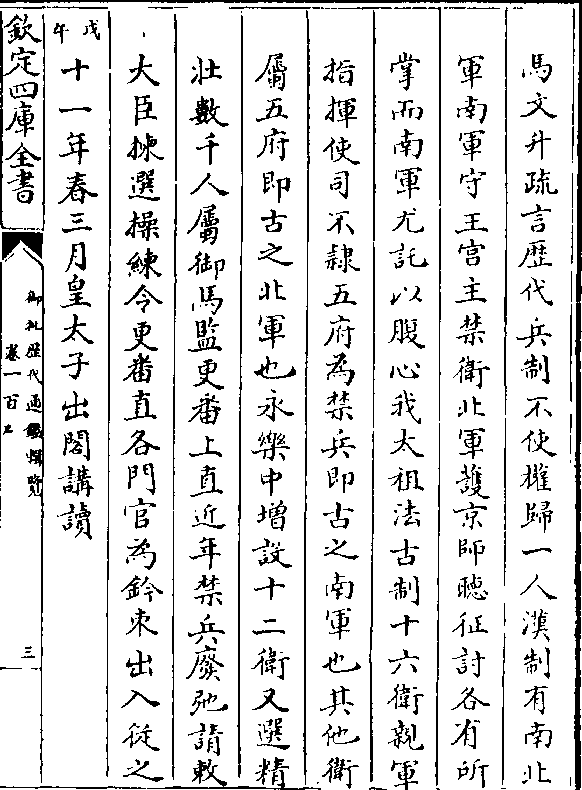 馬文升疏言歴代兵制不使權歸一人漢制有南北
軍南軍守王宫主禁衛北軍䕶京師聴征討各有所
掌而南軍尤託以腹心我太祖法古制十六衛親軍
指揮使司不隸五府為禁兵即古之南軍也其他衛
屬五府即古之北軍也永樂中增設十二衛又選精
壮數千人屬御馬監更番上直近年禁兵廢弛請敕
大臣揀選操練令更番直各門官為鈐束出入從之
戊午十一年春三月皇太子出閣講讀
欽定四庫全書
御批歴代通鑑輯覽
卷一百五
三